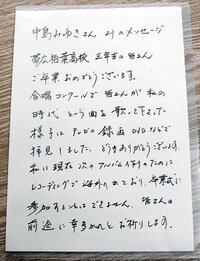 中島みゆきさん よりのメッセージ
帯広柏葉高校 三年生の皆さん
ご卒業おめでとうございます。
合唱コンクールで皆さんが私の
時代 という曲を歌って下さった
様子は テレビの録画DVDなどで
拝見しました、どうもありがとうございます。
私は現在次のアルバム作りのために
レコーディングで海外へ出ており、卒業式に
参加することはできません、皆さんの
前途に幸多かれとお祈りします。